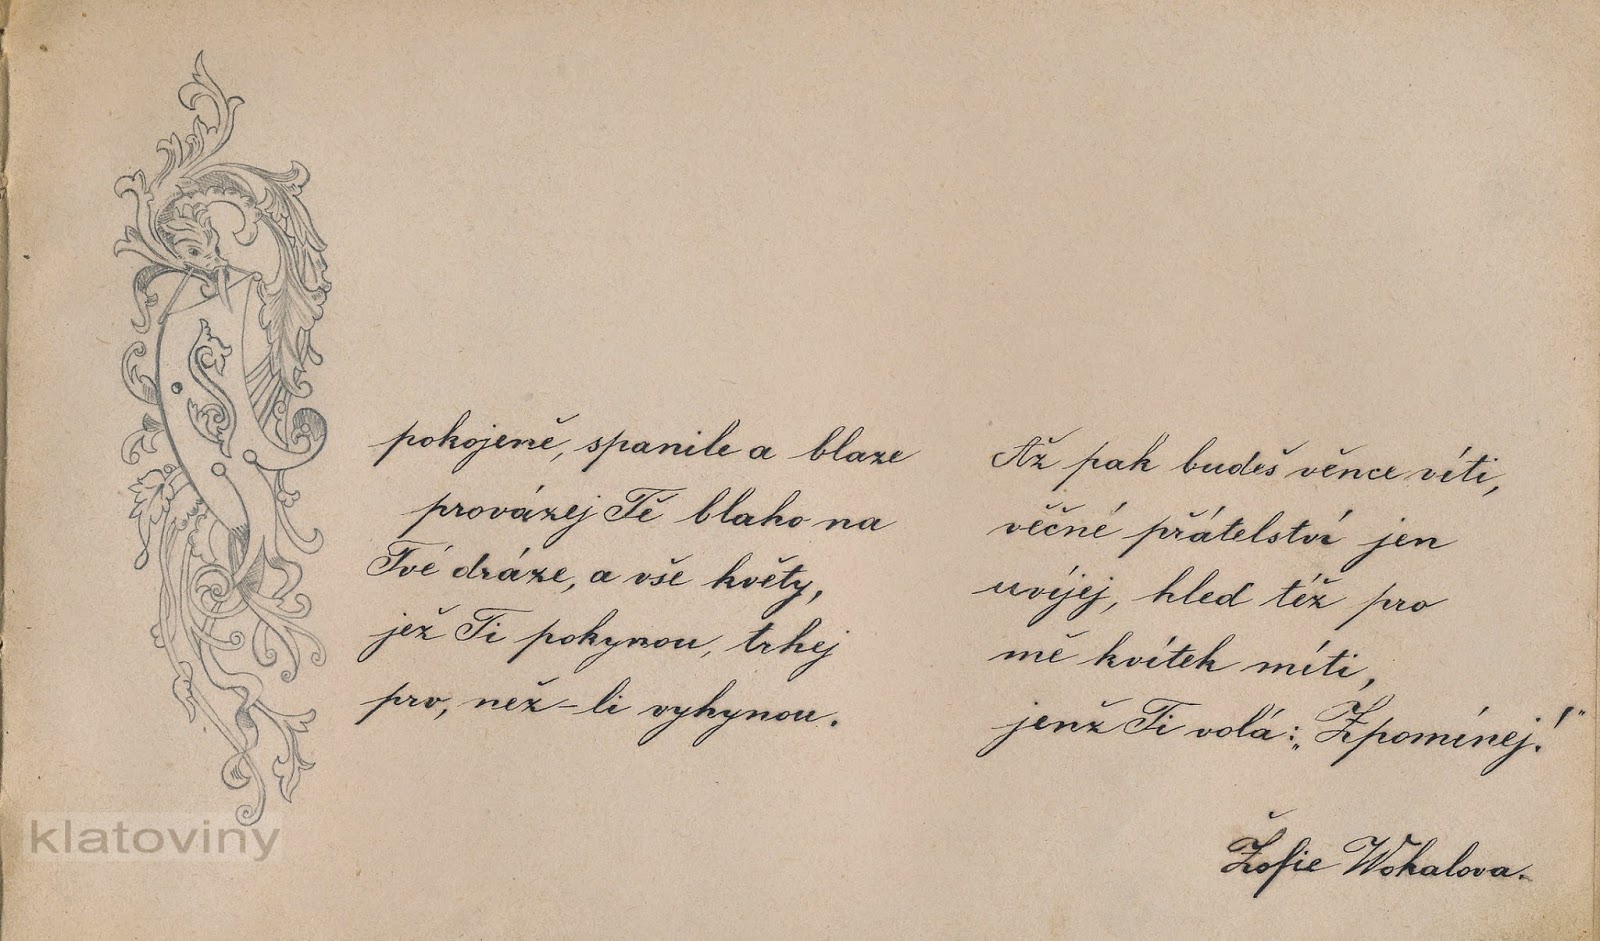 pokojeně, spanile a blaze
provázej Tě blaho na
Tvé dráze, a vše květy,
jež Ti pokynou, trhej
prv, než-li vyhynou.
Až pak budeš věnce víti,
věčné přátelství jen
uvíjej, hleď též pro
mě kvítek míti,
jenž Ti volá: „Zpomínej!"
Žofie Wokalova.
klatoviny